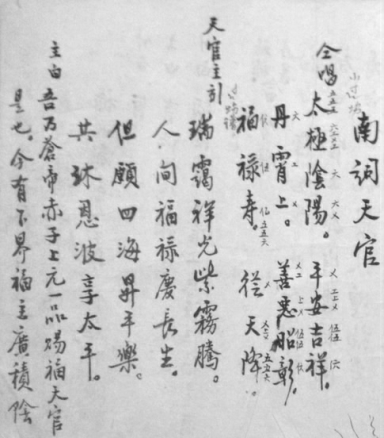 南詞天官
仝唱太極陰陽。平安吉祥。
丹霄上。善惡昭彰。
福祿壽。從天降。
天官主引
瑞靄祥光紫霧騰。
人間福祿慶長生。
但願四海昇平樂。
共沐恩波享太平。
主白 吾乃蒼帝赤子上元一品賜福天官
是也。今有下界福主廣積陰